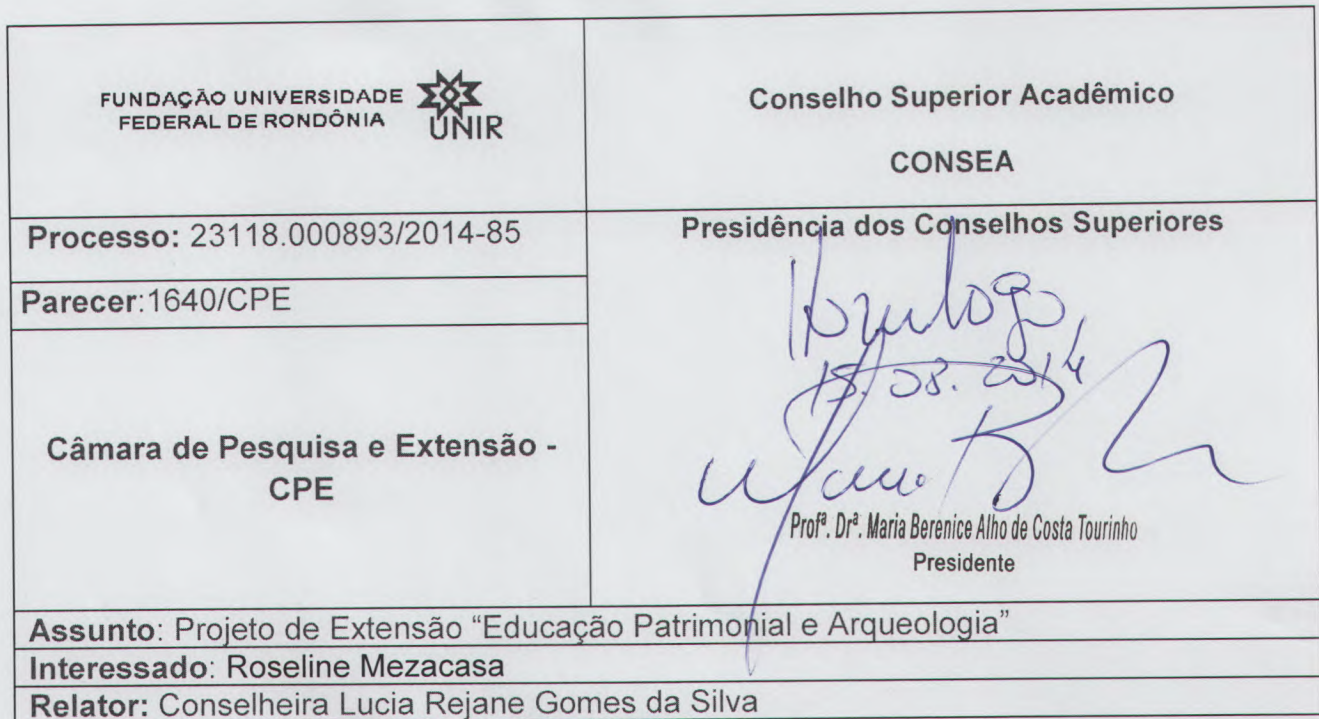 FUNDAÇÃO UNIVERSIDADE
FEDERAL DE RONDÔNIA
UNIR
Conselho Superior Acadêmico
CONSEA
Processo: 23118.000893/2014-85
Parecer:1640/CPE
Câmara de Pesquisa e Extensão -
CPE
Presidência dos Conselhos Superiores
Homologo,
15.08.2014
Profª. Drª. Maria Berenice Alho de Costa Tourinho
Presidente
Assunto: Projeto de Extensão “Educação Patrimonial e Arqueologia”
Interessado: Roseline Mezacasa
Relator: Conselheira Lucia Rejane Gomes da Silva